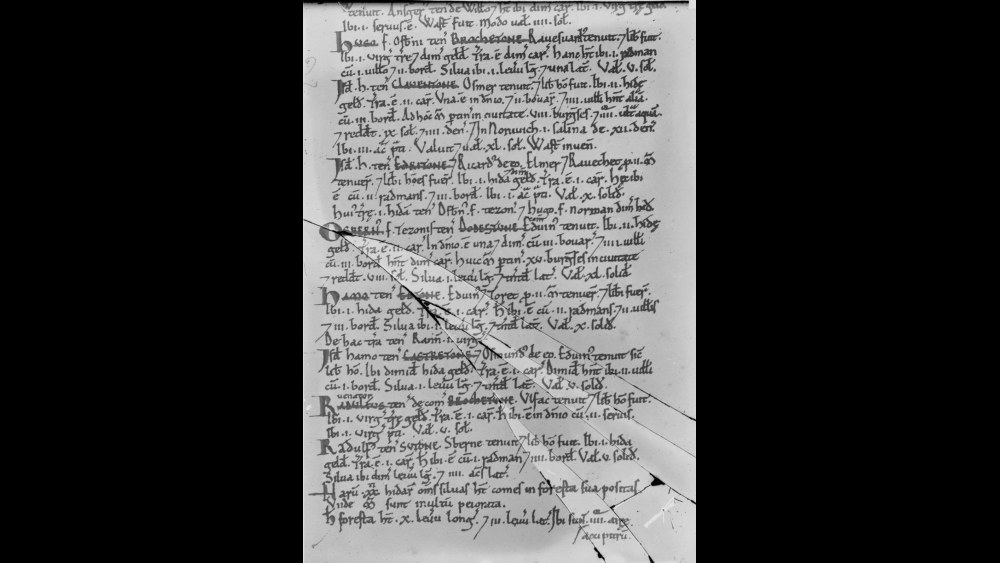 tenuit. Ansger ten de Willo 7 ht ibi dim car. Ibi .i. virg træ
Ibi .i. seruus. e. Wast fuit. Modo ual. iiii. sol.
Hugo f. Osbni ten BROCHETONE. Rauesuard tenuit. 7 lib fuit.
Ibi .i. virg træ 7 dim geld. Tra. e. dim car. Hanc ht ibi .i. radman
cu .i. uillo 7 ii. bord. Silua ibi .i. leuu lg. 7 una lat. Val. v. sol.
Isd. h. ten CLAVENTONE. Osmer tenuit. 7 lib ho fuit. Ibi .ii. hidę
geld. Tra. e. ii. car. Una. e. in dnio. 7 ii. bouar. 7 iiii. uilli hnt alia
cu .iii. bord. Ad hoc m ptin in ciuitate. viii. burgses. 7 iiii. ult aqua.
7 reddt. ix. sol. 7 iiii. den. 7 In Noruuich. i. salina de. xii. den.
Ibi .iii. ac pti. Valuit 7 ual. xl. sol. Wast inuen.
Isd. h. ten EDRITONE. 7 Ricard de eo. Elmer 7 Rauechet p. ii. m
tenuer. 7 libi hoes fuer. Ibi .i. hida geld. Tra. e. i. car. H ht ibi
e cu .ii. radmans. 7 iii. bord. Ibi .i. ac pti. Val. x. solid.
Hui træ. i. hida ten Osbn. f. tezon. 7 hugo. f. norman dim hid.
OSBERN. f. Tezonis ten DODESTUNE. Eduin tenuit. Ibi .ii. hidę
geld. Tra. e. ii. car. In dnio. e. una 7 dim. cu .iii. bouar. 7 iiii. uilli
cu .iii. bord hnt dim car. Huic m ptin. xv. burgses in ciuitate
7 reddt. viii. sol. Silua .i. leuu lg. 7 tntd lat. Val. xl. solid.
HAMO ten ETONE. Eduin 7 Toret p. ii. m tenuer. 7 libi fuer.
Ibi .i. hida geld. Tra. e. i. car. H ibi. e. cu .ii. radmans. 7 ii. uillis
7 iii. bord. Silua ibi .i. leuu lg. 7 tntd lat. Val. x. solid.
De hac tra ten Rann. i. virg.
Isd. hamo ten CASTRETONE. 7 Osmund de eo. Eduin tenuit sic
lib ho. Ibi dimid hida geld. Tra. e. i. car. Dimid hnt ibi .ii. uilli
cu .i. bord. Silua .i. leuu lg. 7 tntd lat. Val. v. solid.
venator
RADULFUS ten de com BROCHETONE. Ulfac tenuit. 7 lib ho fuit.
Ibi .i. virg træ geld. Tra. e. i. car. H ibi. e. in dnio cu .ii. seruis.
Ibi .i. virg pti. Val. v. sol.
Radulf ten SUTONE. Sberne tenuit 7 lib ho fuit. Ibi .i. hida
geld. Tra. e. i. car. H ibi. e. cu .i. radman 7 iiii. bord. Val. v. solid.
Silua ibi dim leuu lg. 7 iiii. ac lat.
Haru xx hidar oms siluas ht comes in foresta sua positas
Unde m sunt multu peiorata.
H foresta ht. x. leuu long. 7 iii. leuu lat. Ibi sunt. iiii. airę
Accipitru.